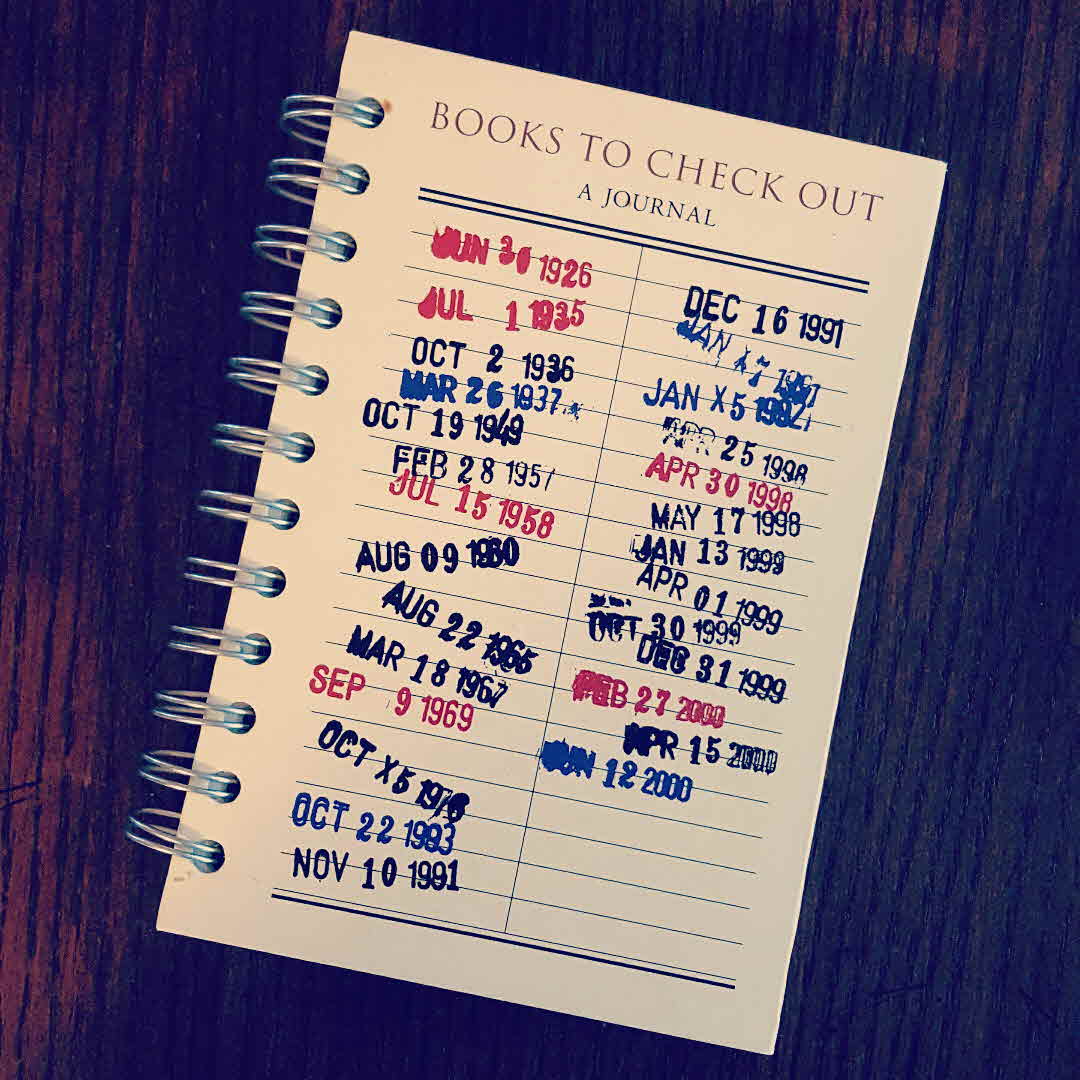 BOOKS TO CHECK OUT
A JOURNAL
JUN 30 1926
JUL 1 1935
OCT 2 1936
MAR 26 1937
OCT 19 1949
FEB 28 1957
JUL 15 1958
AUG 09
AUG 22 1965
MAR 18 1967
SEP 9 1969
OCT X5
OCT 22 1993
NOV 10 1991
DEC 16 1991
JAN
JAN X5
APR 25 1998
APR 30 1998
MAY 17 1998
JAN 13 1999
APR 01 1999
OCT 30 1999
DEC 31 1999
FEB 27 2000
APR 15 2000
JUN 12 2000